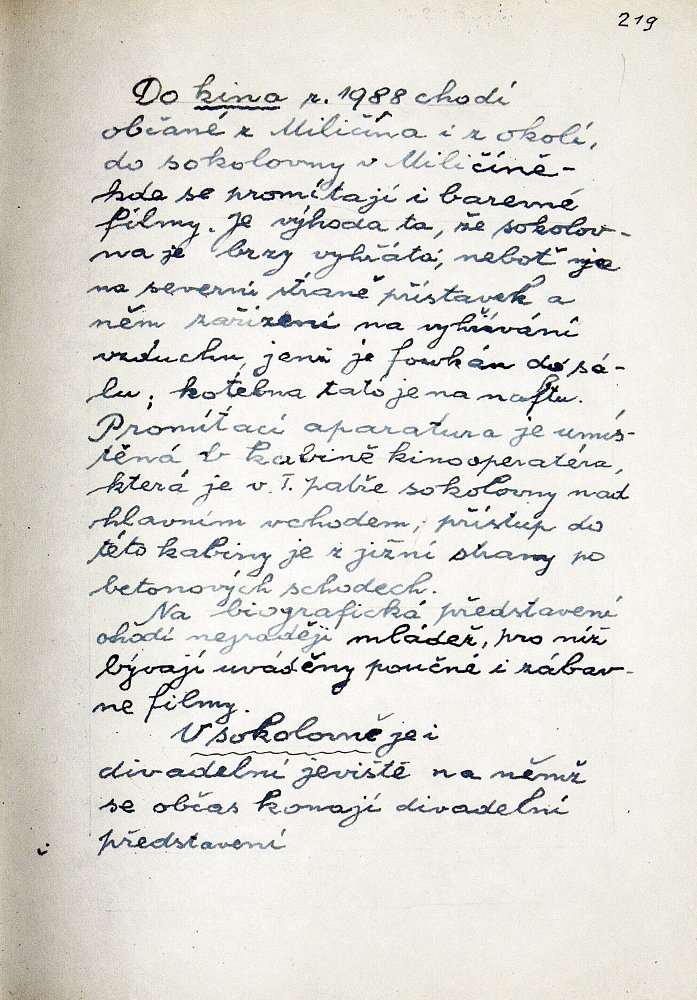 219
Do kina r. 1988 chodí
občané z Miličína i z okolí,
do sokolovny v Miličíně-
kde se promítají i barevné
filmy. Je výhoda ta, že sokolov-
na je brzy vyhřátá, neboť je
na severní straně přístavek a
něm zařízení na vyhřívání
vzduchu, jenž je foukán do sá-
lu; kotelna tato je na naftu.
Promítací aparatura je umís-
těná v kabině kinooperatéra,
která je v I. patře sokolovny nad
hlavním vchodem; přístup do
této kabiny je z jižní strany po
betonových schodech.
Na biografická představení
chodí nejraději mládež, pro níž
bývají uváděny poučné i zábav-
ne filmy.
V sokolovně je i
divadelní jeviště na němž
se občas konají divadelní
představení